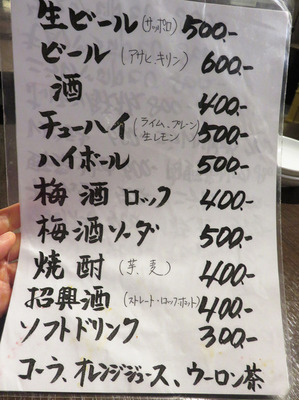 生ビール(サッポロ) 500.-
ビール(アサヒ、キリン) 600.-
酒 400.-
チューハイ(ライム、プレーン 生レモン) 500.-
ハイボール 500.-
梅酒ロック 400.-
梅酒ソーダ 500.-
焼酎(芋、麦) 400.-
招興酒(ストレート・ロック・ホット) 400.-
ソフトドリンク 300.-
コーラ、オレンジジュース、ウーロン茶